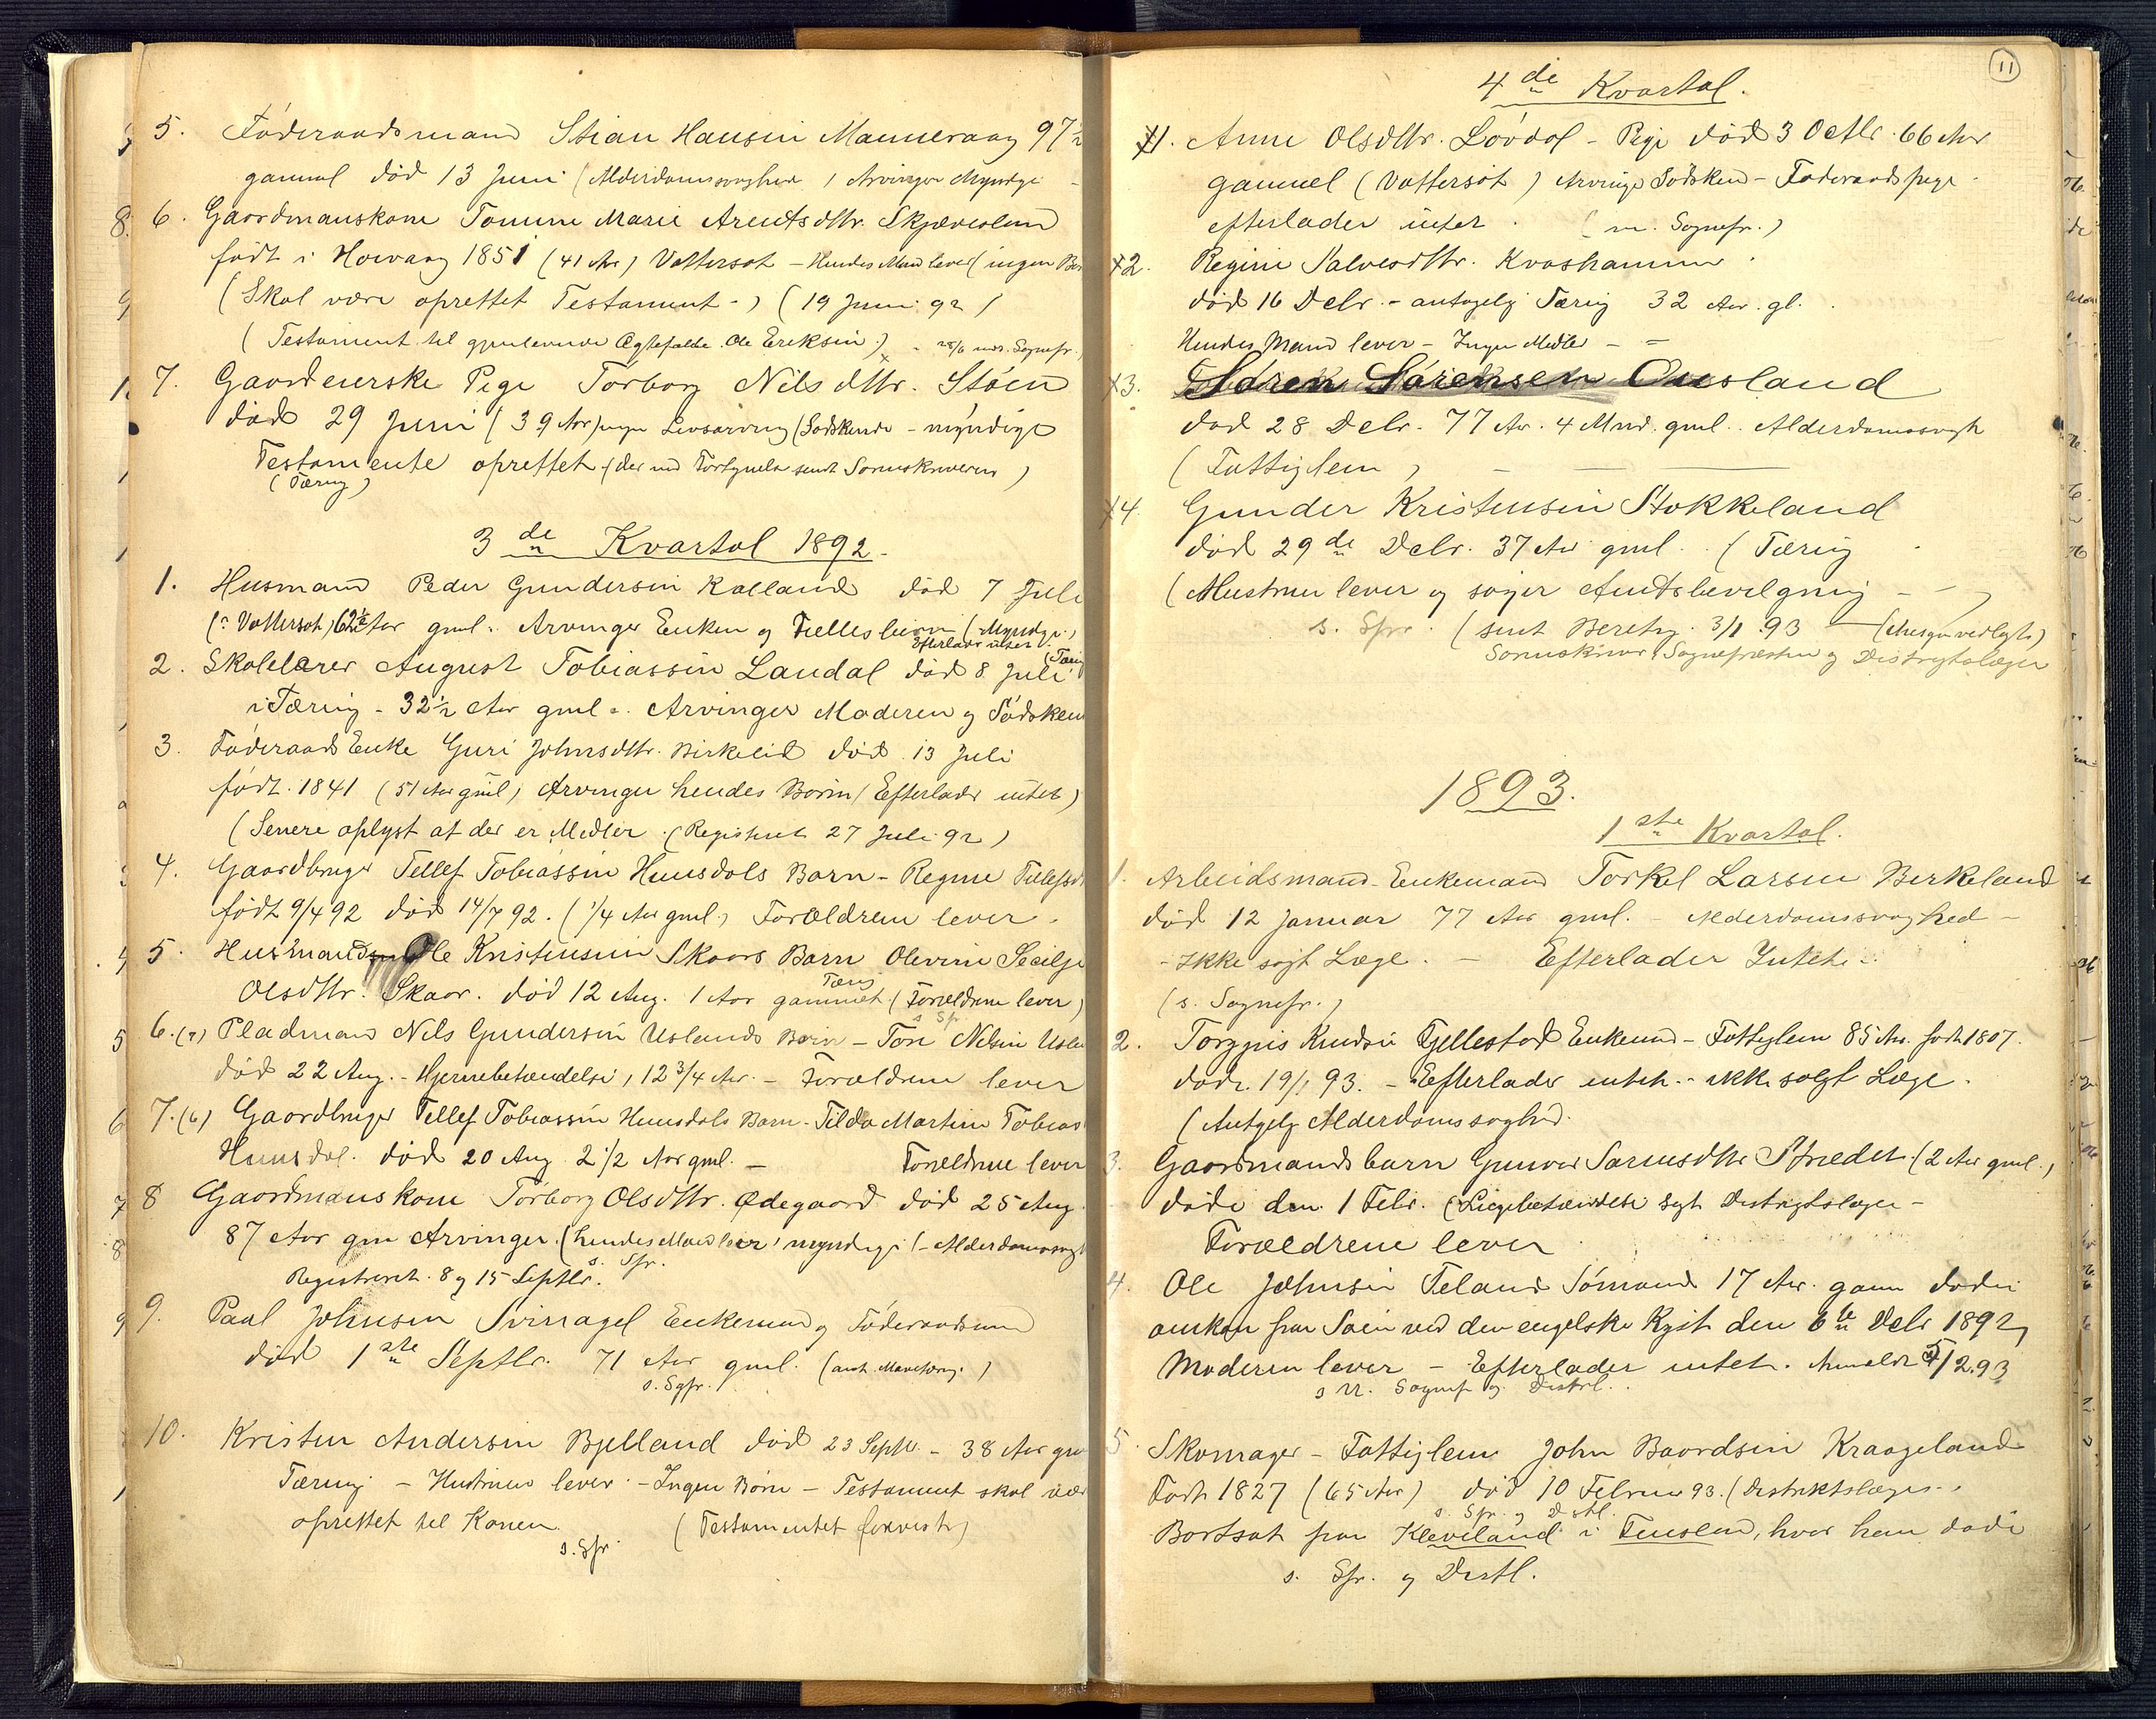 5. Föderaadsmand Stian Hansen Manneraag 97½
gammel död 13 Juni (Alderdomssvaghed / Arvinger Myndige
6. Gaardmanskone Tomine Marie Arentsdttr. Skjæveslund
född i Howaag 1851 (41 Aar) Vattersot - Hendes Mand lever (ingen
(Skal være oprettet Testament -) (19 Juni 92)
(Testament til gjenlevende Ægtefælle Ole Eriksen.) - Sognepr.
7. Gaardeierske Pige Torborg Nilsdttr. Stöen
död 29 Juni (39 Aar) ingen Livsarving (Södskende - myndige
Testamente oprettet (der ved sendt Sorenskriveren)
(Tæring)
3de Kvartal 1892.
1. Husmand Peder Gundersen Kalland död 7 Juli
(: Vattersot) 62½ Aar gml. Arvinger Enken og Fælles børn (Myndige.)
Efterlader intet.
2. Skolelærer August Tobiassen Landal död 8 Juli (Tæring
i Tæring - 32½ Aar gml. Arvinger Moderen og Södsken
3. Föderaads Enke Guri Johnsdttr. Birkelid död 13 Juli
födt 1841 (51 Aar gml) Arvinger hendes Börn / Efterlader intet)
(Senere oplyst at der er Midler. (Registreret 27 Juli 92)
4. Gaardbruger Tellef Tobiassen Hunsdals Barn - Regine Tellefsd
födt 9/4 92 död 14/7 92. (1/4 Aar gml.) Forældrene lever.
5. Husmand Ole Kristensen Skaars Barn Olevine Secilje
Olsdttr. Skaar. död 12 Aug. 1 Aar gammel (Forældrene lever)
Tæring
s. Spr.
6.(7) Pladsmand Nils Gundersen Uslands Barn - Tore Nelsen Usla
död 22 Aug. - Hjernebetændelse, 12 3/4 Aar. - Forældrene lever
7.(6) Gaardbruger Tellef Tobiassen Hunsdals Barn - Tilda Martine Tobias
Hunsdal. död 20 Aug 2 1/2 Aar gml. - Forældrene lever
8 Gaardmanskone Torborg Olsdttr. Ødegaard död 25 Aug.
87 Aar gm Arvinger. (hendes Mand lever, myndige / - Alderdomssvag
Registreret. 8 og 15 Septbr. s. Spr.
9. Paal Johnsen Svinagel Enkemand og Föderaadsmand
död 1ste Septbr. 71 Aar gml. (ant. Mavetæring.)
s. Sgpr.
10. Kristen Andersen Bjelland död 23 Septbr. - 38 Aar gm
Tæring - Hustruen lever - Ingen Börn - Testament skal være
oprettet til Konen. (Testamentet forevist)
s. Spr.
11
4de Kvartal.
1. Anne Olsdttr. Lövdal - Pige död 3 Octbr. 66 Aar
gammel (Vattersot) Arvinge Södsken - Föderaads pige -
efterlader intet. (m. Sognepr.)
2. Regine Salvesdttr. Kvashammer.
död 16 Debr. - antagelig Tæring 32 Aar. gl.
Hendes Mand lever - Ingen Midler - -
3. Sören Sörensen Ousland
död 28 Debr. 77 Aar. 4 Mnd. gml. Alderdomssvagh
(Fattiglem)
4. Gunder Kristensen Stokkeland
död 29de Debr. 37 Aar gml. (Tæring
(Hustruen lever og söger Amtsbevilgning -
s. Spr. (sendt Beretng. 3/1 93 - (vedlagt)
Sorenskriver, Sognepræsten og Distriktslægen
1893.
1ste Kvartal.
1. Arbeidsmand - Enkemand Torkel Larsen Birkeland
död 12 Januar 77 Aar gml. - Alderdomssvaghed -
- Ikke sögt Læge. - Efterlader Intet.
(s. Sognepr.)
2. Torgris Knudsen Fjellestad Enkemd - Fattiglem 85 Aar. födt 1807.
död. 19/1 93. - Efterlader intet. - ikke sögt Læge.
(Antgelg Alderdomssvaghed.
3. Gaardmandsbarn Gunvor Sörensdttr Strædet (2 Aar gml.,
döde den 1 Febr. (betændelse sögt Distriktslægen -
Forældrene lever
4. Ole Johnsen Teland Sömand 17 Aar. gam döde
omkom paa Söen ved den engelske Kyst den 6te Debr 1892,
Moderen lever - Efterlader intet. Anmeldt 5/2.93
s. Sognepr og Distrl.
5. Skomager - Fattiglem John Baardsen Kraageland
Födt 1827 (65 Aar) död 10 Februar 93. (Distriktslægen.
s. Spr. og Distl.
Bortsat paa Kleveland i Finsland, hvor han döde
s. Spr. og Distl.